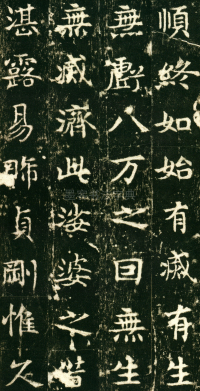 順終如始有滅有生
無虧八万之回無生
無滅濟此娑婆之
湛露易晞貞剛惟久